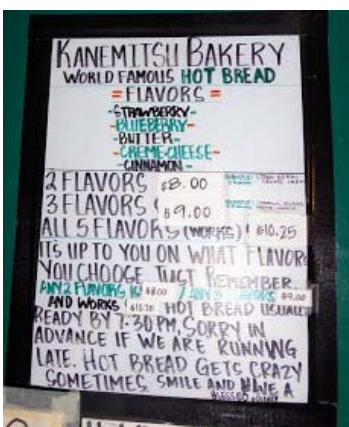 KANEMITSU BAKERY
WORLD FAMOUS HOT BREAD
= FLAVORS =
-STRAWBERRY-
-BLUEBERRY-
-BUTTER-
-CREME CHEESE-
-CINNAMON-
2 FLAVORS $8.00
3 FLAVORS $9.00
ALL 5 FLAVORS (WORKS)! $10.25
ITS UP TO YOU ON WHAT FLAVORS
YOU CHOOSE JUST REMEMBER
ANY 2 FLAVORS IS $8.00 / ANY 3 $9.00
AND WORKS! $10.25 HOT BREAD USUALLY
READY BY 7:30 PM, SORRY IN
ADVANCE IF WE ARE RUNNING
LATE. HOT BREAD GETS CRAZY
SOMETIMES SMILE AND HAVE A
BLESSED